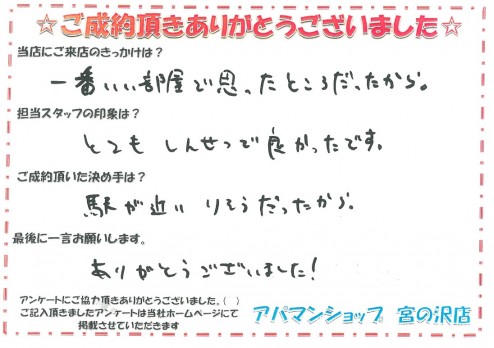 ☆ご成約頂きありがとうございました☆
当店にご来店のきっかけは？
一番いい部屋で思ったところだったから。
担当スタッフの印象は？
とても しんせつで 良かったです。
ご成約頂いた決め手は？
駅が近い りそうだったから。
最後に一言お願いします。
ありがとうございました！
アンケートにご協力頂きありがとうございました。( )
ご記入頂きましたアンケートは当社ホームページにて
掲載させていただきます
アパマンショップ 宮の沢店